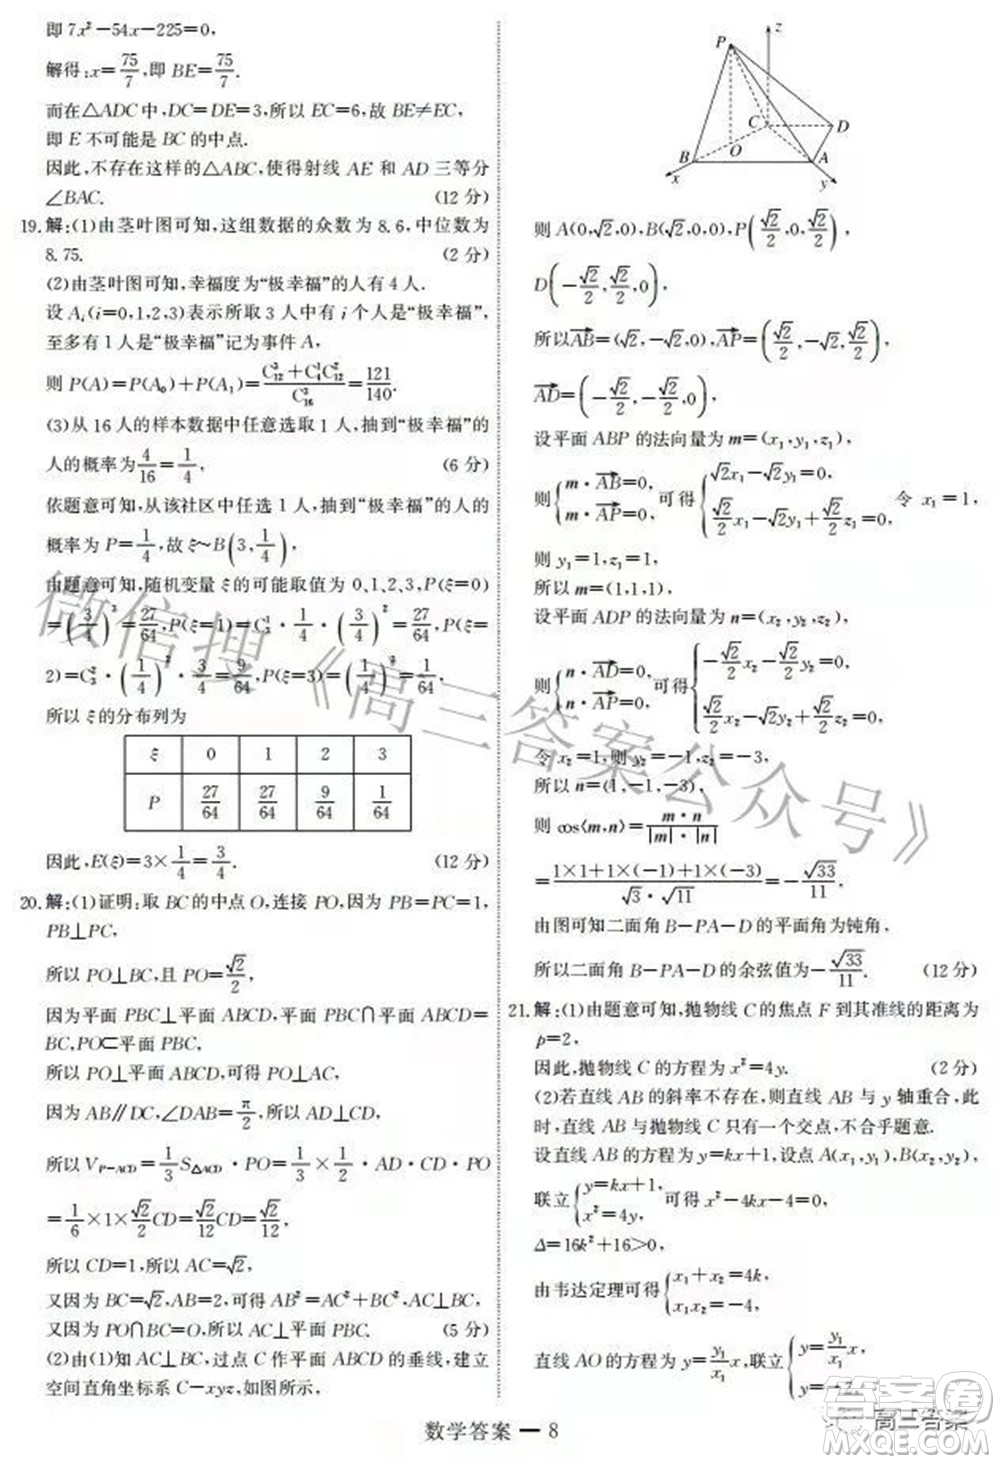 即 7x²－54x－225＝0,
解得:x＝75/7,即 BE＝75/7.
而在△ADC 中,DC＝DE＝3,所以 EC＝6,故 BE≠EC,
即 E 不可能是 BC 的中点.
因此,不存在这样的△ABC,使得射线 AE 和 AD 三等分
∠BAC. (12 分)
19.解:(1)由茎叶图可知,这组数据的众数为 8.6,中位数为
8.75. (2 分)
(2)由茎叶图可知,幸福度为“极幸福”的人有 4 人.
设 Aᵢ(i＝0,1,2,3)表示所取 3 人中有 i 个人是“极幸福”,
至多有 1 人是“极幸福”记为事件 A,
则 P(A)＝P(A₀)＋P(A₁)＝(C³₁₂＋C¹₄C²₁₂)/C³₁₆＝121/140.
(3)从 16 人的样本数据中任意选取 1 人,抽到“极幸福”的
人的概率为4/16＝1/4, (6 分)
依题意可知,从该社区中任选 1 人,抽到“极幸福”的人的
概率为 P＝1/4,故 ξ~B(3,1/4),
由题意可知,随机变量 ξ 的可能取值为 0,1,2,3,P(ξ＝0)
＝(3/4)³＝27/64,P(ξ＝1)＝C¹₃·1/4·(3/4)²＝27/64,P(ξ＝
2)＝C²₃·(1/4)²·3/4＝9/64,P(ξ＝3)＝(1/4)³＝1/64.
所以 ξ 的分布列为
ξ 0 1 2 3
P 27/64 27/64 9/64 1/64
因此,E(ξ)＝3×1/4＝3/4. (12 分)
20.解:(1)证明:取 BC 的中点 O,连接 PO,因为 PB＝PC＝1,
PB⊥PC,
所以 PO⊥BC,且 PO＝√2/2,
因为平面 PBC⊥平面 ABCD,平面 PBC∩平面 ABCD＝
BC,PO⊂平面 PBC,
所以 PO⊥平面 ABCD,可得 PO⊥AC,
因为 AB∥DC,∠DAB＝π/2,所以 AD⊥CD.
所以 V_{P－ACD}＝1/3 S△ACD·PO＝1/3×1/2·AD·CD·PO
＝1/6×1×√2/2 CD＝√2/12 CD＝√2/12,
所以 CD＝1,所以 AC＝√2,
又因为 BC＝√2,AB＝2,可得 AB²＝AC²＋BC²,AC⊥BC,
又因为 PO∩BC＝O,所以 AC⊥平面 PBC. (5 分)
(2)由(1)知 AC⊥BC,过点 C 作平面 ABCD 的垂线,建立
空间直角坐标系 C－xyz,如图所示,
z
P
C
D
B
O
A
x
y
则 A(0,√2,0),B(√2,0,0),P(√2/2,0,√2/2),
D(－√2/2,√2/2,0),
所以AB→＝(√2,－√2,0),AP→＝(√2/2,－√2,√2/2),
AD→＝(－√2/2,－√2/2,0),
设平面 ABP 的法向量为 m＝(x₁,y₁,z₁),
则{m·AB→＝0, m·AP→＝0,可得{√2x₁－√2y₁＝0, √2/2x₁－√2y₁＋√2/2z₁＝0, 令 x₁＝1,
则 y₁＝1,z₁＝1,
所以 m＝(1,1,1),
设平面 ADP 的法向量为 n＝(x₂,y₂,z₂),
则{n·AD→＝0, n·AP→＝0,可得{－√2/2x₂－√2/2y₂＝0, √2/2x₂－√2y₂＋√2/2z₂＝0,
令 x₂＝1,则 y₂＝－1,z₂＝－3,
所以 n＝(1,－1,－3),
则 cos⟨m,n⟩＝m·n/(|m|·|n|)
＝(1×1＋1×(－1)＋1×(－3))/(√3·√11)＝－√33/11,
由图可知二面角 B－PA－D 的平面角为钝角,
所以二面角 B－PA－D 的余弦值为－√33/11. (12 分)
21.解:(1)由题意可知,抛物线 C 的焦点 F 到其准线的距离为
p＝2,
因此,抛物线 C 的方程为 x²＝4y. (2 分)
(2)若直线 AB 的斜率不存在,则直线 AB 与 y 轴重合,此
时,直线 AB 与抛物线 C 只有一个交点,不合乎题意.
设直线 AB 的方程为 y＝kx＋1,设点 A(x₁,y₁),B(x₂,y₂),
联立{y＝kx＋1, x²＝4y,可得 x²－4kx－4＝0,
Δ＝16k²＋16>0,
由韦达定理可得{x₁＋x₂＝4k, x₁x₂＝－4,
直线 AO 的方程为 y＝y₁/x₁ x,联立{y＝y₁/x₁ x,
数学答案 — 8
微信搜《高三答案公众号》
高三答案
答案圈
MXQE.COM